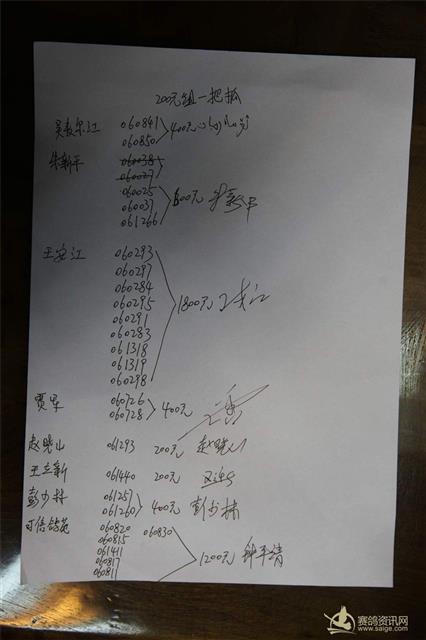 200元组一把抓
吴麦尔江 060841 400元
060850
朱新平 060038
060027
060025
060037 800元
061266
王安江 060293
060297
060284
060295
060291 1800元
060283
061318
061319
060298
贾军 060726 400元
060728
赵晓山 061293 200元 赵晓山
王立新 061440 200元
彭少林 061257
061260 400元 彭少林
可信鸽苑 060820 060830
060815
061411 1200元
060817
060811
赛鸽资讯网
www.saige.com